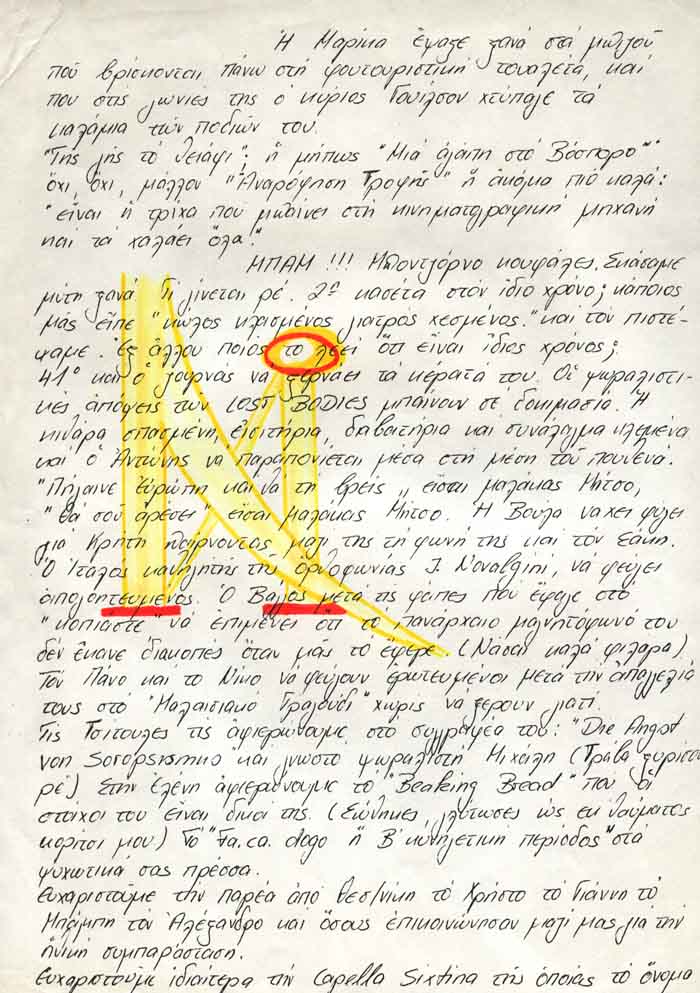 Ἡ Μαρίκα ἔψαξε ξανά στά μπιζού
πού βρίσκονται πάνω στή φουτουριστική τουαλέτα, καί
που στίς γωνιές της ὁ κύριος Γουίλσον χτύπαγε τά
καλάμια τῶν ποδιῶν του.
"Τῆς γῆς τό θειάφι"; ἤ μήπως "Μιά ἀγάπη στό Βόσπορο"
ὄχι, ὄχι, μᾶλλον "Ἀναρόφηση Τροφῆς" ἤ ἀκόμα πιό καλά:
"εἶναι ἡ τρίχα πού μπαίνει στή κινηματογραφική μηχανή
καί τά χαλάει ὅλα."
ΜΠΑΜ !!! Μποντζόρνο κουφάλες. Σκάσαμε
μύτη ξανά. Τι γίνεται ρέ. 2η κασέτα στόν ἴδιο χρόνο; κάποιος
μᾶς εἶπε "κῶλος κλασμένος γιατρός χεσμένος" καί τόν πιστέ-
ψαμε. Ἐξ ἄλλου ποιός τό λέει ὅτι εἶναι ἴδιος χρόνος;
41° καί ὁ τζουρνάς νά ξερνάει τά κέρατά του. Οἱ ψωραλιστι-
κές ἀπόψεις τῶν LOST BODIES μπαίνουν σέ δοκιμασία. Ἡ
κινάρα σπασμένη, εἰσιτήρια, διαβατήρια καί συνάλλαγμα κλεμένα
καί ὁ Ἀντώνης νά παραπονιέται μέσα στή μέση τοῦ πουθενά.
"Πήγαινε Εὐρώπη καί νά τή βρεῖς" εἶσαι μαλάκας Μῆτσο,
"θά σοῦ ἀρέσει" εἶσαι μαλάκας Μῆτσο. Ἡ Βούλα νά χει φύγει
γιά Κρήτη παίρνοντας μαζί της τή φωνή της καί τόν Σάκη.
Ὁ Ἰταλός καθηγητής τῆς ὀρθοφωνίας J. Novalgini, νά φεύγει
ἀπογοητευμένος. Ὁ Βαγγος μετά τίς φάπες πού ἔφαγε στό
"κοπιάστε" νά ἐπιμένει ὅτι τό πανάρχαιο μαγνητόφωνό του
δέν ἔκανε διακοπές ὅταν μᾶς τό ἔφερε. (Νάσαι καλά φιλαρα).
Τόν Πάνο καί τό Νίκο νά φεύγουν ἐρωτευμένοι μετά την ἀπαγγελία
τους στό "Μαλαισιακο Τραγούδι" χωρίς νά ξέρουν γιατί.
Τίς Τσιτουλες τίς ἀφιερώνουμε στό συγγραφέα του: "Die Angst
von Soropsismho" καί γνωστο ψωραλιστή Μιχάλη (Τράβα ξυρίσου
ρέ) Στην Ἑλένη ἀφιερώνουμε τό "Beaking Bread" πού οἱ
στίχοι του εἶναι δικοί της. (Σώθηκες, γλύτωσες ὡς ἐκ θαύματος
κορίτσι μου) Τό "Fa.ca. dogo ἤ Β' κυνηγετική περίοδος" στά
ψυχωτικά σας πρέσσα.
Εὐχαριστοῦμε την παρέα ἀπό Θεσ/νίκη τό Χρῆστο τό Γιάννη τό
Μπάμπη τόν Ἀλέξανδρο καί ὅσους ἐπικοινώνησαν μαζί μας γιά την
ἠθική συμπαράσταση.
Εὐχαριστοῦμε ἰδιαίτερα τήν Capella Sixtina τῆς ὁποίας τό ὄνομα